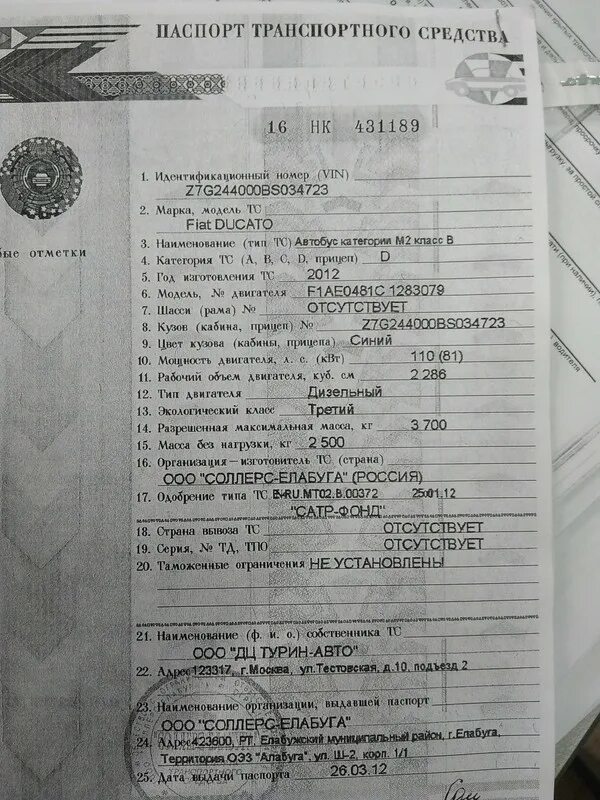 ПАСПОРТ ТРАНСПОРТНОГО СРЕДСТВА
16 НК 431189
1. Идентификационный номер (VIN)
Z7G244000BS034723
2. Марка, модель ТС
Fiat DUCATO
3. Наименование (тип ТС) Автобус категории М2 класс В
4. Категория ТС (A, B, C, D, прицеп) D
5. Год изготовления ТС 2012
6. Модель, № двигателя F1AE0481C 1283079
7. Шасси (рама) № ОТСУТСТВУЕТ
8. Кузов (кабина, прицеп) № Z7G244000BS034723
9. Цвет кузова (кабины, прицепа) Синий
10. Мощность двигателя, л. с. (кВт) 110 (81)
11. Рабочий объем двигателя, куб. см 2 286
12. Тип двигателя Дизельный
13. Экологический класс Третий
14. Разрешенная максимальная масса, кг 3 700
15. Масса без нагрузки, кг 2 500
16. Организация–изготовитель ТС (страна)
ООО "СОЛЛЕРС-ЕЛАБУГА" (РОССИЯ)
17. Одобрение типа ТС E-RU.MT02.B.00372 25.01.12
"САТР-ФОНД"
18. Страна вывоза ТС ОТСУТСТВУЕТ
19. Серия, № ТД, ТПО ОТСУТСТВУЕТ
20. Таможенные ограничения НЕ УСТАНОВЛЕНЫ
21. Наименование (ф. и. о.) собственника ТС
ООО "ДЦ ТУРИН-АВТО"
22. Адрес 123317, г.Москва, ул.Тестовская, д.10, подъезд 2
23. Наименование организации, выдавшей паспорт
ООО "СОЛЛЕРС-ЕЛАБУГА"
24. Адрес 423600, РТ, Елабужский муниципальный район, г.Елабуга,
Территория ОЭЗ "Алабуга", ул. Ш-2, корп. 1/1
25. Дата выдачи паспорта 26.03.12
отметки
водителя